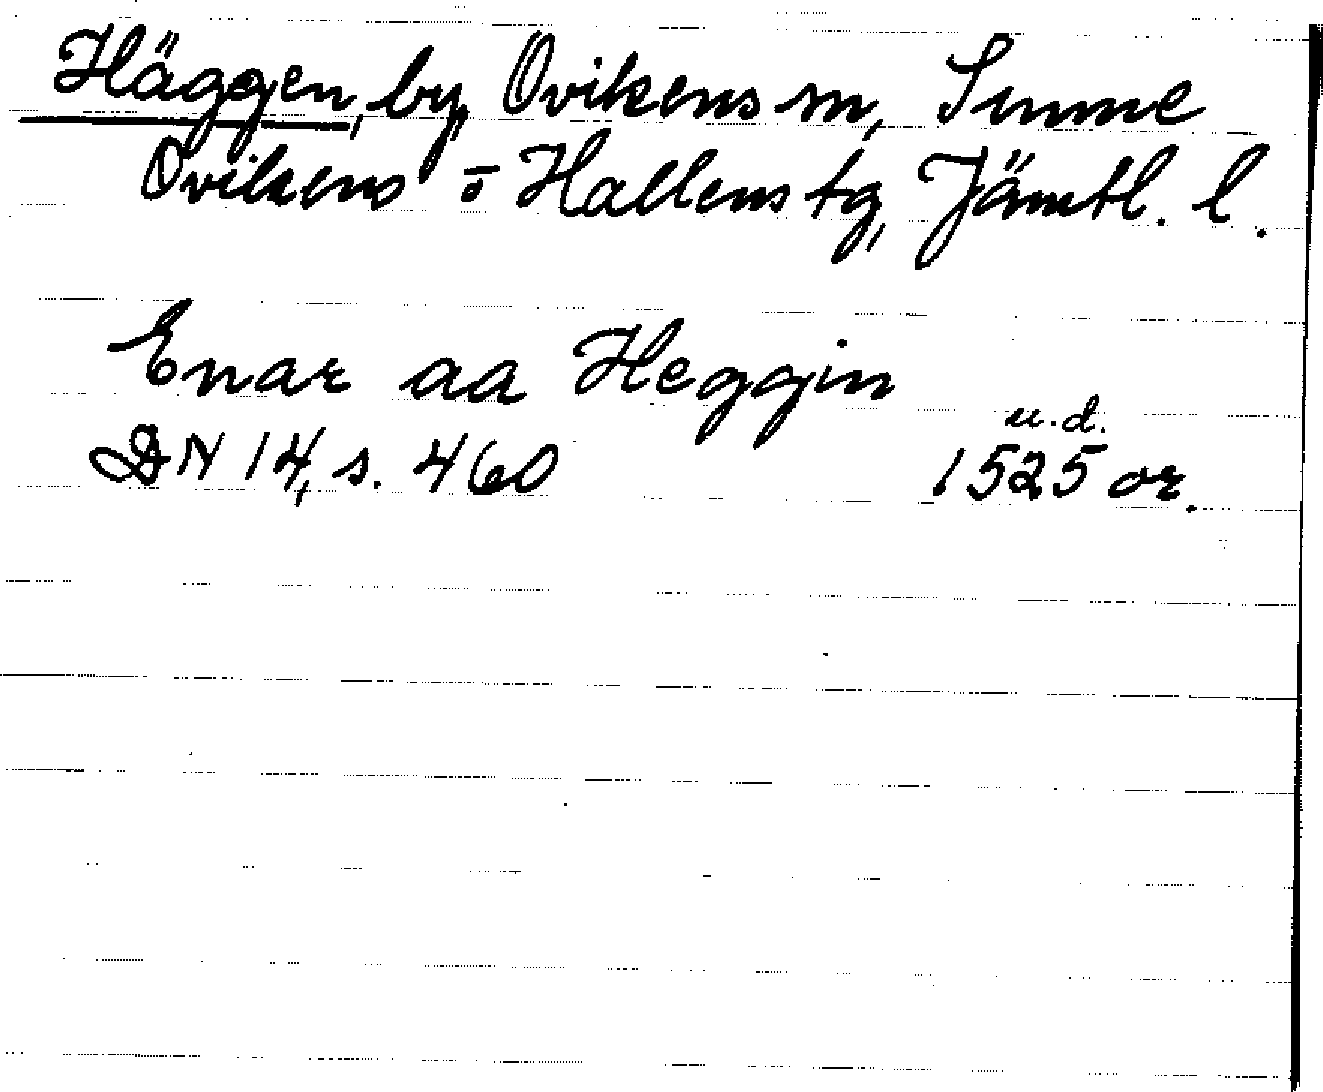 Häggen, by, Ovikens sn, Sunne
Ovikens o Hallens tg, Jämtl. l.
Enar aa Heggin
u.d.
DN 14, s. 460 1525 or.